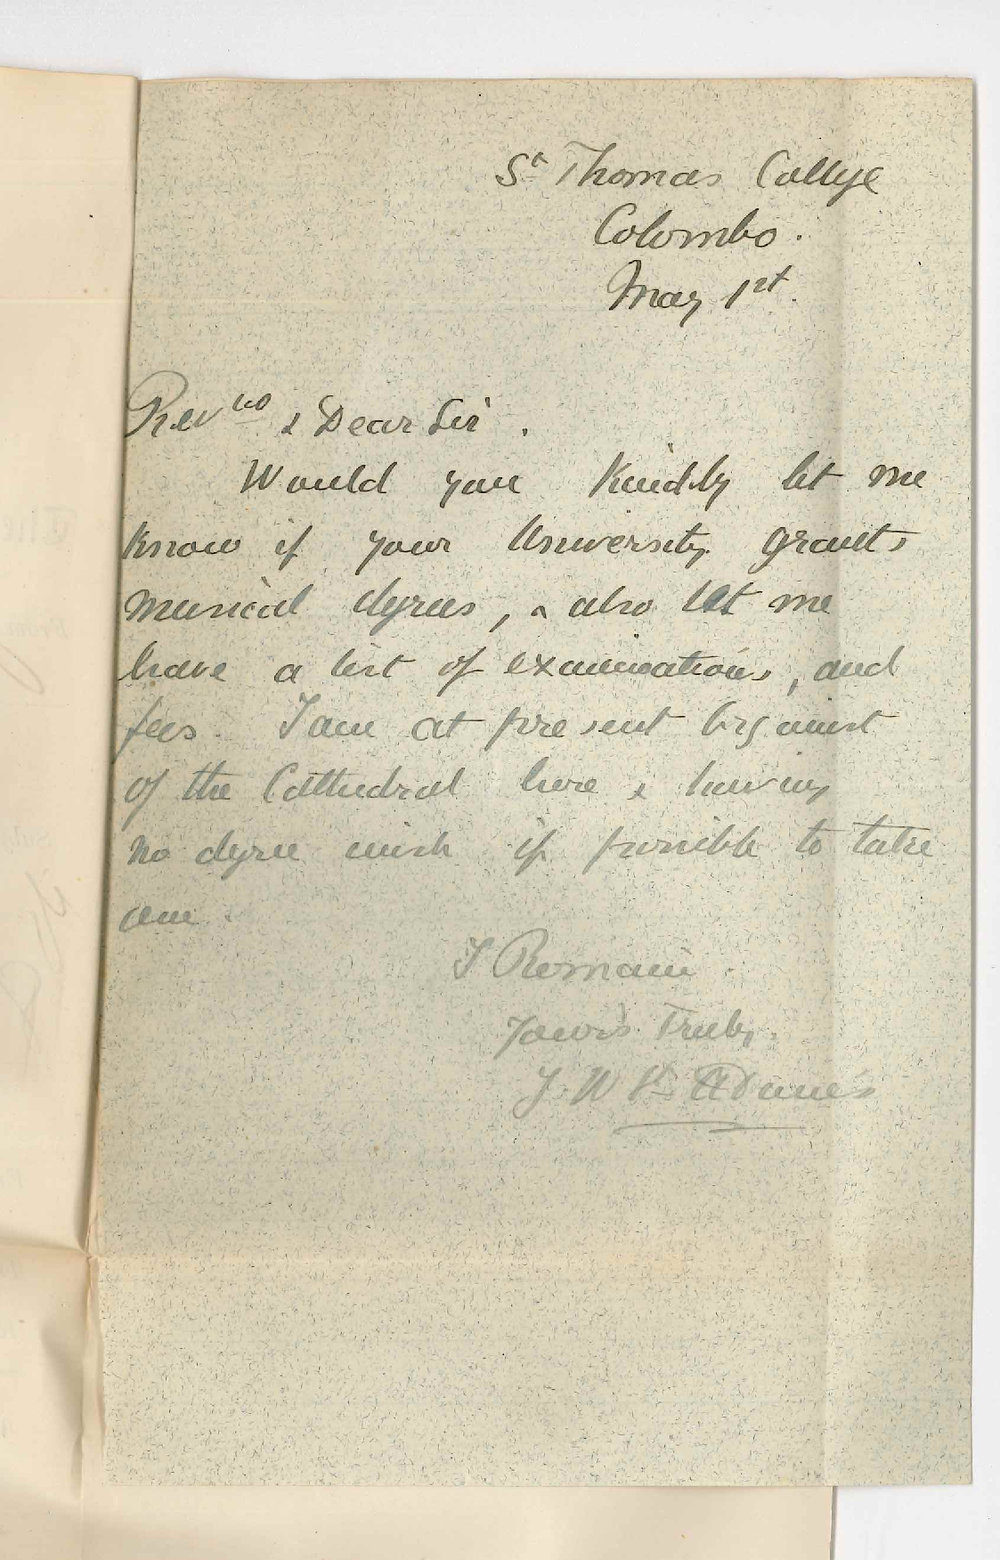 St Thomas College
Colombo.
May 1st.
Rev & Dear Sir.
Would you kindly let me
know if your University grants
musical degrees, & also let me
have a list of examinations, and
fees. I am at present Organist
of the Cathedral here & having
no degree wish if possible to take
one.
I Remain
Yours Truly,
J. W.